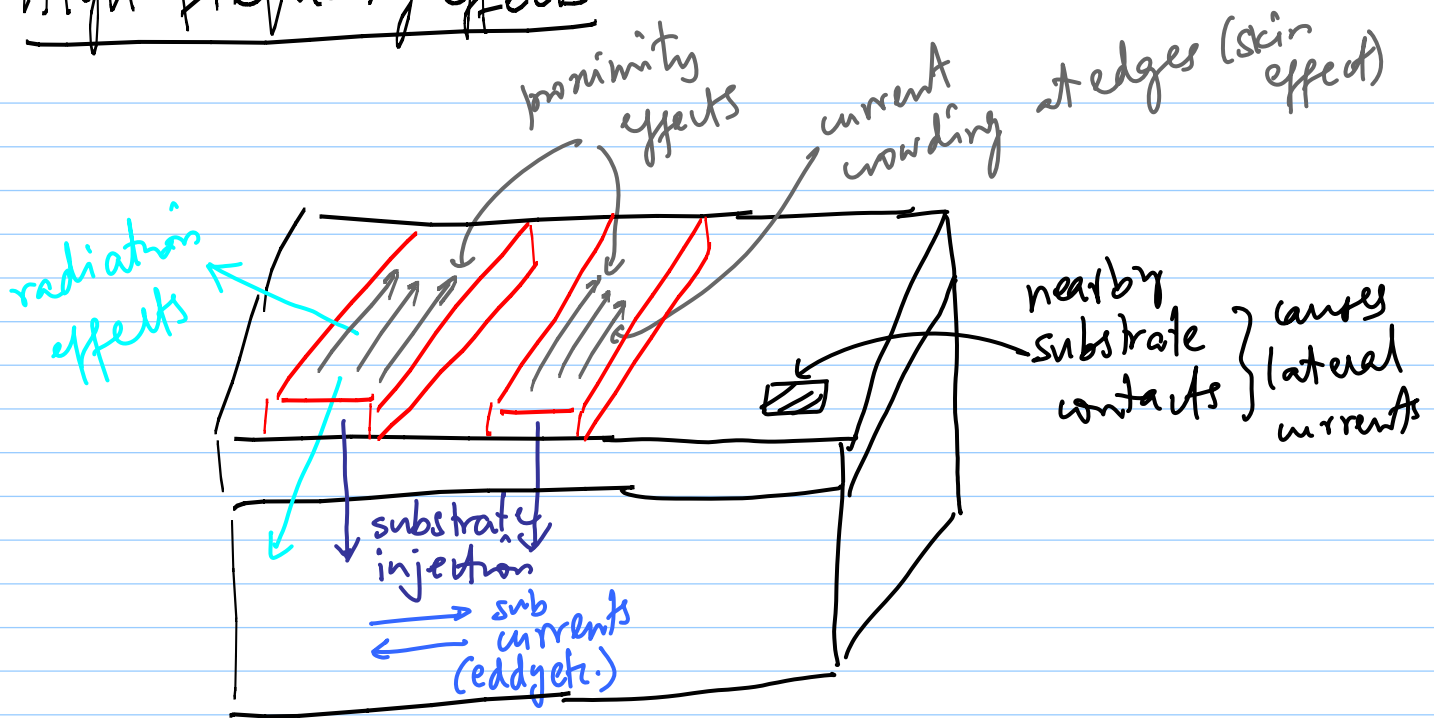 High frequency effects
proximity
effects
current
crowding at edges (skin
effect)
radiation
effects
nearby
substrate
contacts
causes
lateral
currents
substrate
injection
sub
currents
(eddy etc.)